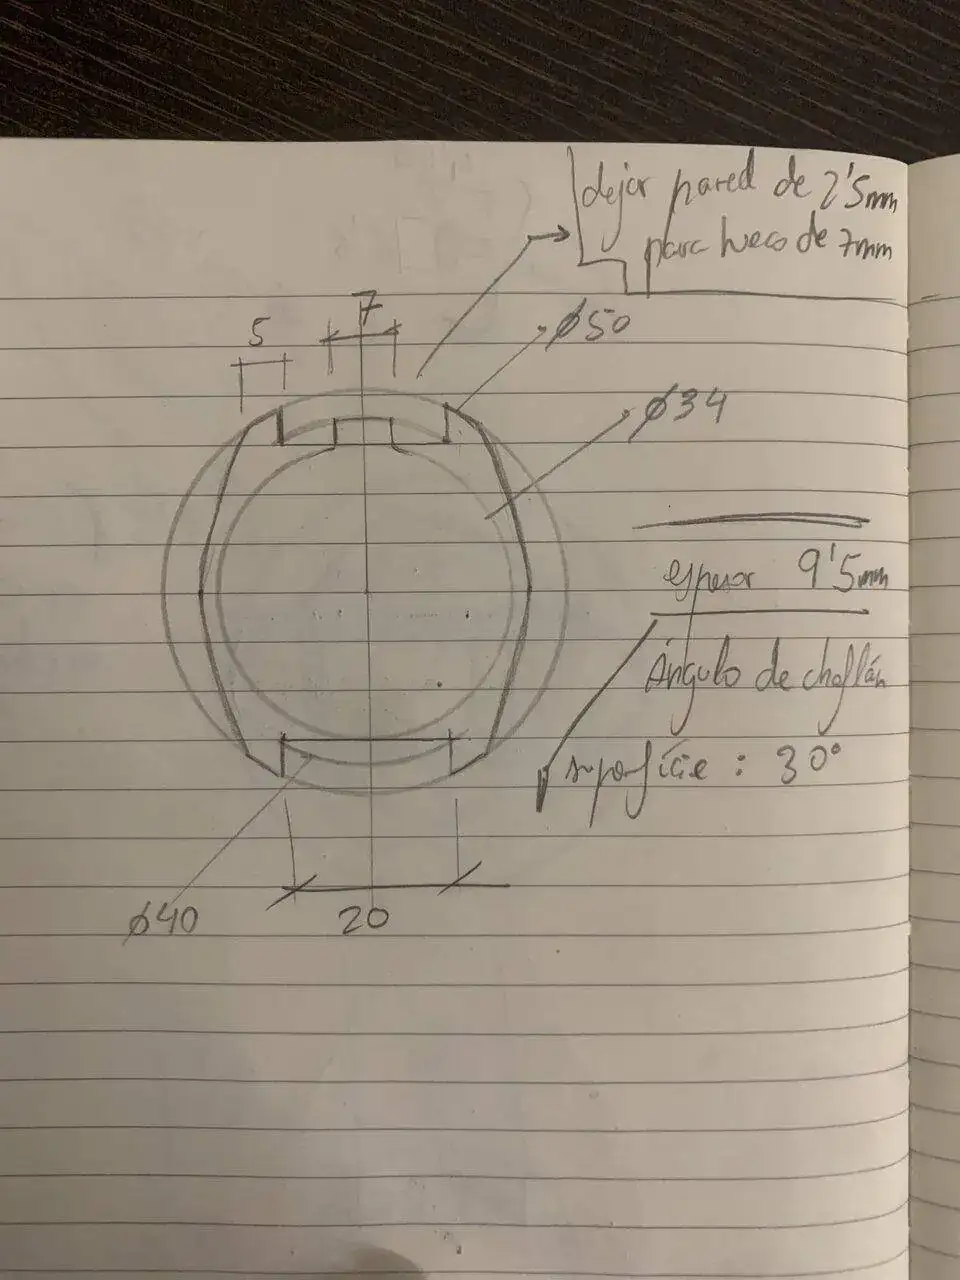 dejar pared de 2'5mm
para hueco de 7mm
7
5
ø50
ø34
espesor 9'5mm
Ángulo de chaflán
superficie : 30°
ø40
20